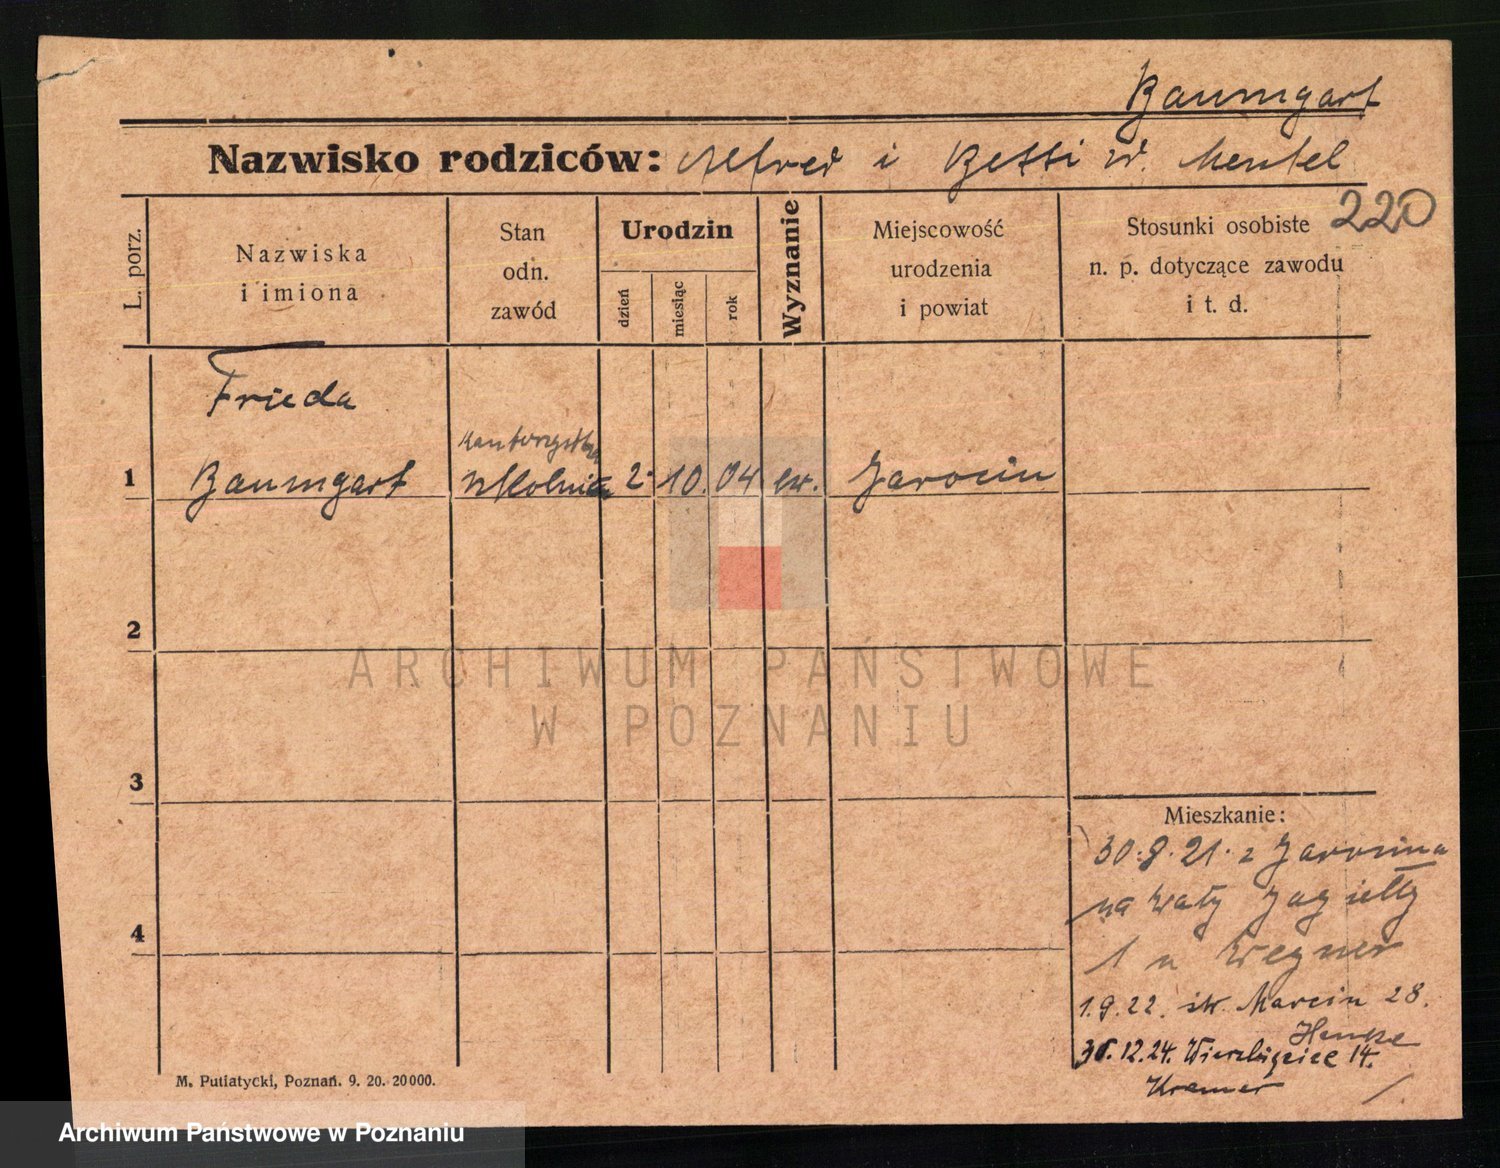 Baumgart
Nazwisko rodziców: Alfred i Betti ur. Mentel
220
L. porz.
Nazwiska
i imiona
Stan
odn.
zawód
Urodzin
dzień
miesiąc
rok
Wyznanie
Miejscowość
urodzenia
i powiat
Stosunki osobiste
n. p. dotyczące zawodu
i t. d.
Frieda
1 Baumgart
kantorzystka
2. 10. 04 ew. Jarocin
2
3
4
Mieszkanie:
30.8.21. z Jarocina
na wały Jagiełły
1 u Wegner
1.9.22. św. Marcin 28.
30.12.24. Wierzbięcice 14.
Kramer
M. Putiatycki, Poznań. 9. 20. 20000.
ARCHIWUM PAŃSTWOWE
W POZNANIU
Archiwum Państwowe w Poznaniu